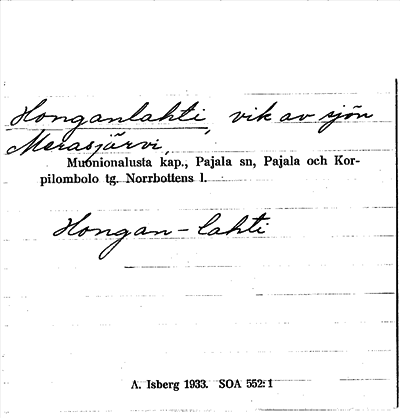 Honganlahti, vik av sjön
Merasjärvi,
Muonionalusta kap., Pajala sn, Pajala och Kor-
pilombolo tg. Norrbottens l.
Hongan-lahti
A. Isberg 1933. SOA 552:1